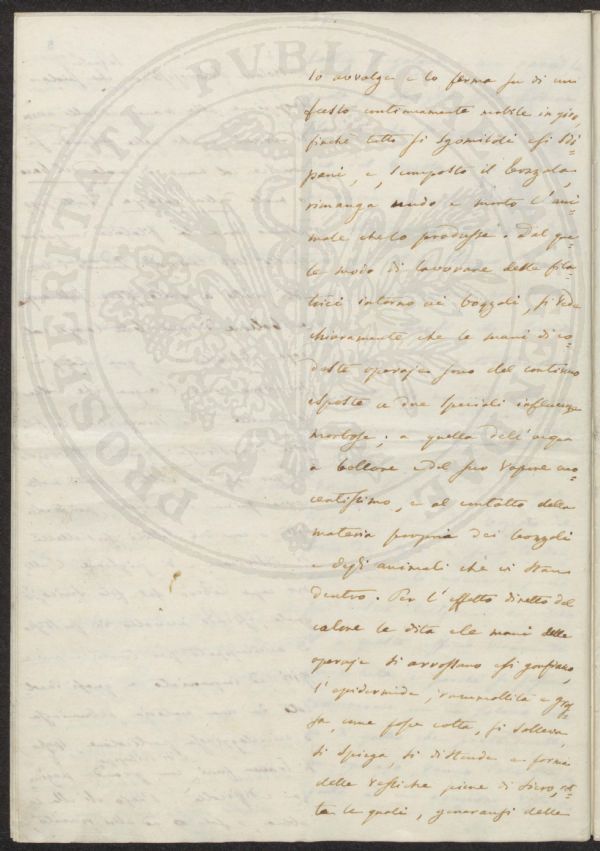 lo avvolge e lo ferma su di un
scesto continuamente mobile in giro,
finché tutto si sgomitoli e si di=
pani, e, scomposto il bozzolo,
rimanga nudo e morto l'ani=
male che lo produsse. Dal que=
le modo di lavorare delle fila=
trici intorno ai bozzoli, si vede
chiaramente che le mani di co=
deste operaje sono del continuo
esposte a due speciali influenze
morbose; a quella dell'acqua
a bollore e del suo vapore
e al contatto della
materia propria dei bozzoli
e degli animali che vi stan
dentro. Per l'effetto diretto del
calore le dita e le mani delle
operaje si arrossano e si gonfiano,
l'epidermide, rammollita e gros=
sa, come fosse cotta, si solleva,
si spiega, si distende a forma
delle vesciche piene di siero,
le quali, generansi delle
PROSPERITATI PUBLICAE AUGENDAE